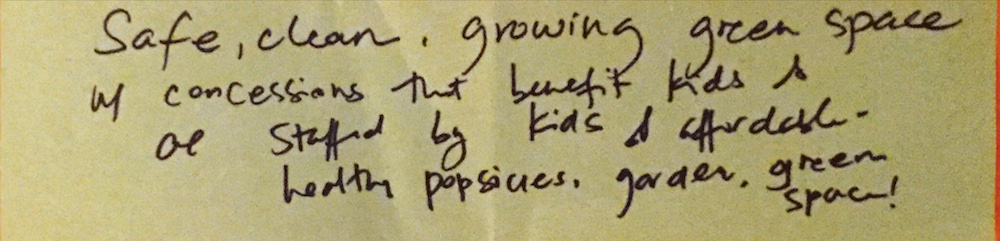 Safe, clean, growing green space
w/ concessions that benefit kids &
are staffed by kids & affordable-
healthy popsicles, garden, green
space!